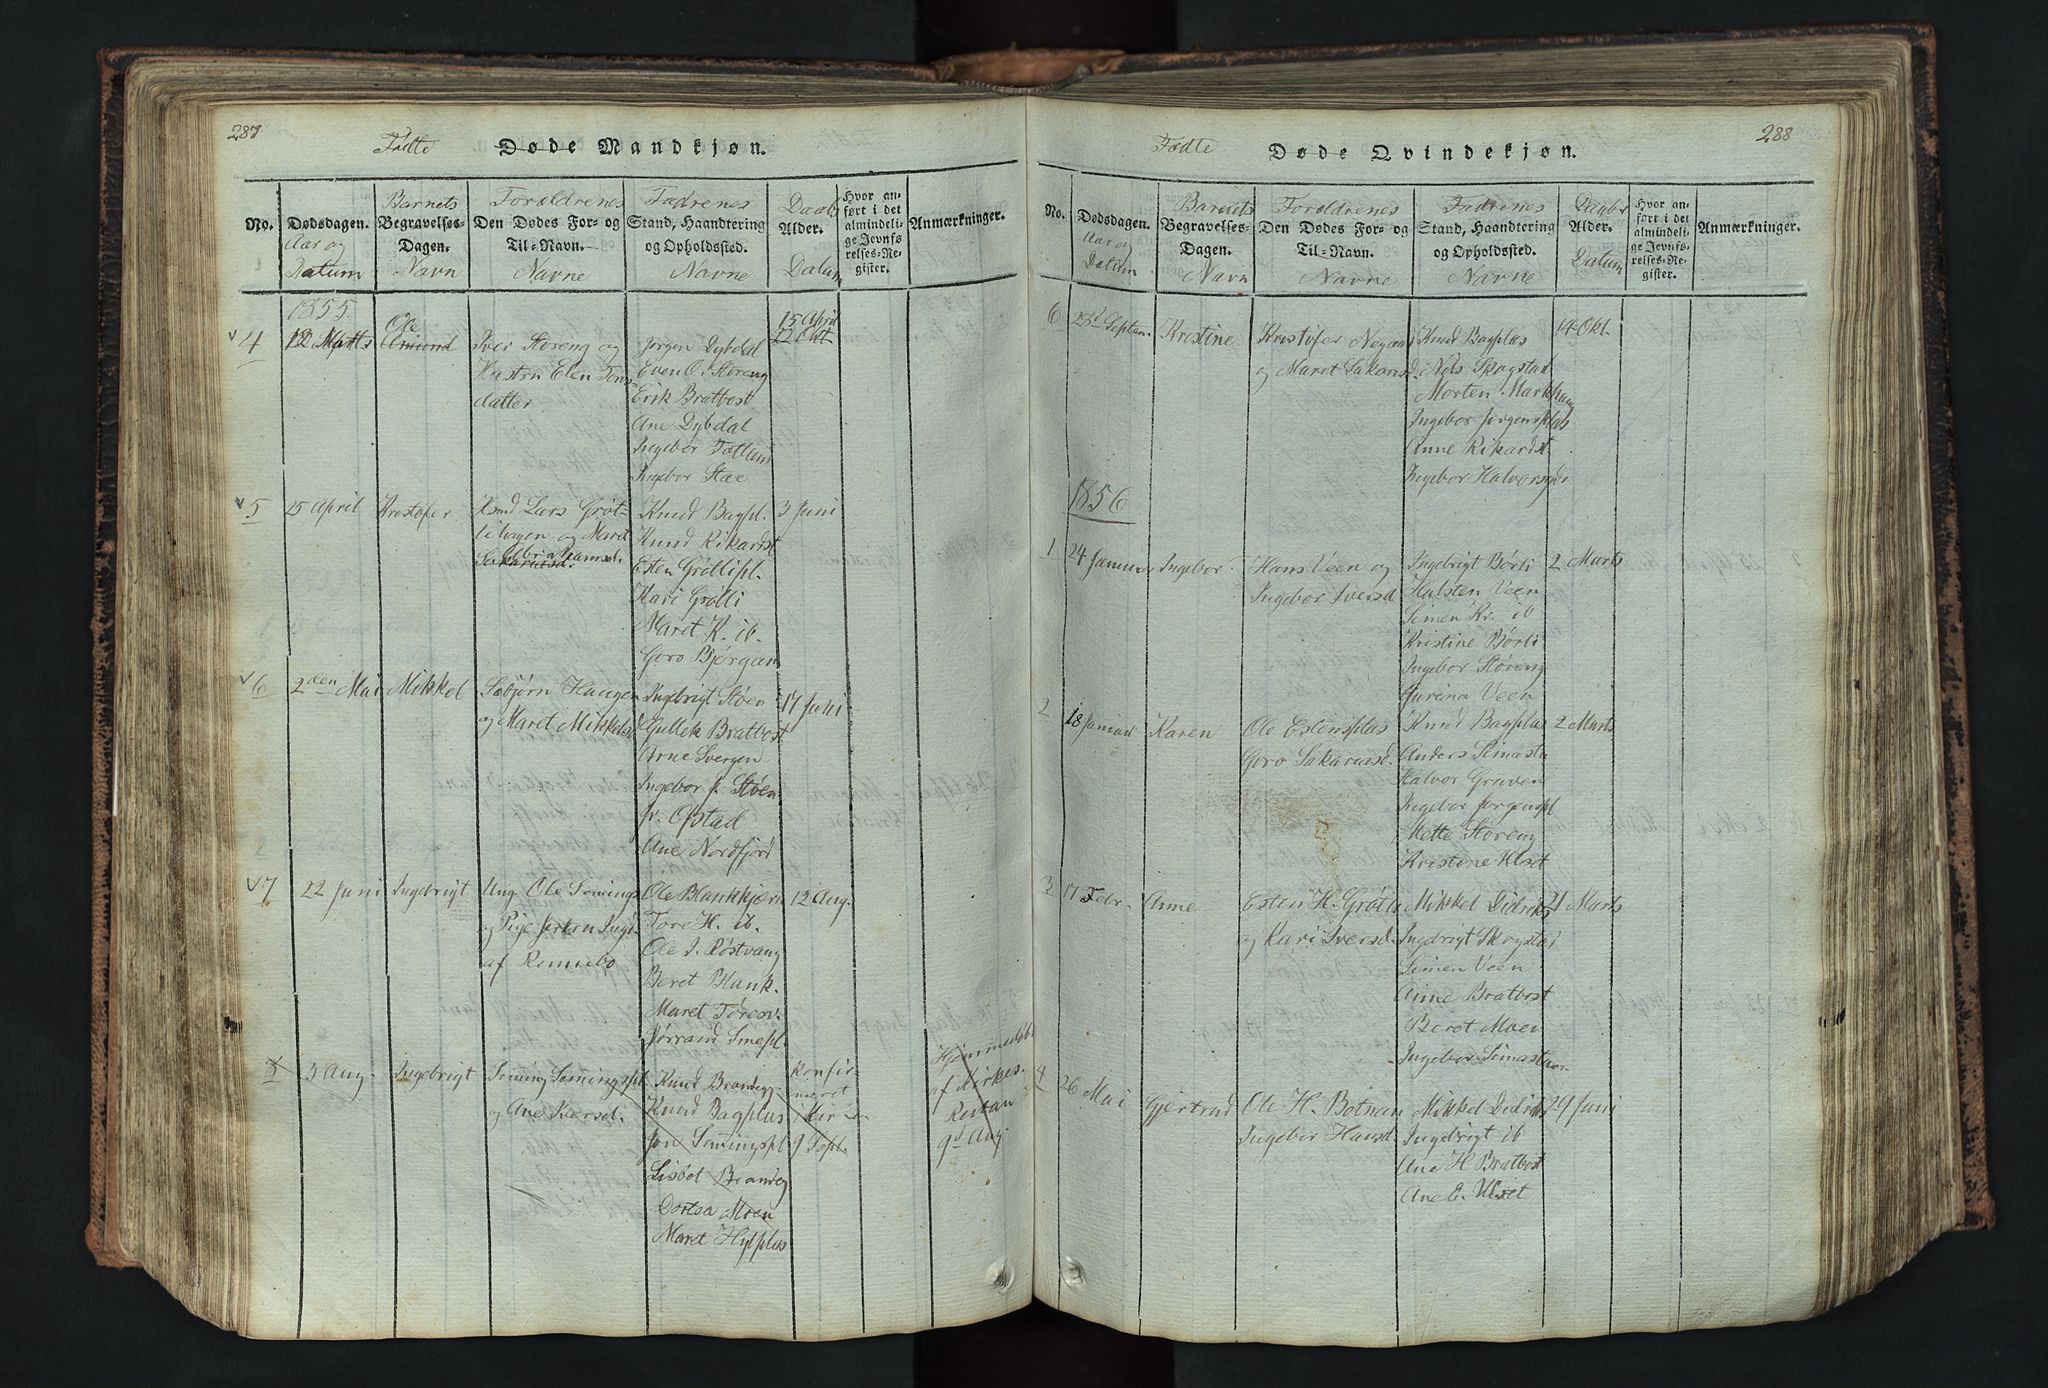 287
Fødte Døde Mandkjøn.
No.
Dødsdagen. Aar og Datum
Barnets Begravelses-Dagen. Navn
Forældrenes Den Dødes For- og Til-Navn. Navne
Fadrenes Stand, Haandtering og Opholdssted. Navne
Daabs Alder. Datum
Hvor anført i det almindelige Jevnførelses-Register.
Anmærkninger.
1855
4 12 Marts Ole
Iver Storeng og
Hustru Elen Tons-
datter
Jørgen Dybdal
Even O. Storeng
Erik Bratbost
Ane Dybdal
Ingebor
Ingebor Stae
15 April
22 Okt
5 15 April Kristofer
Hsmd Lars Grøt-
lihagen og Maret
Abrahamsd.
Knud Bagpl.
Knud Rikardst
Esten Grøtlipl.
Kari Grøtli
Maret K. ib.
Goro Bjørgan
3 Juni
6 2den Mai Mikkel
Sæbjørn Haugen
og Maret Mikkelsd
Ingebrigt Støen
Gullek Bratbost
Arne Svergen
Ingebor J. Støen
Opstad
Ane Nordfjord
17 Juni
7 22 Juni Ingebrigt
Ung. Ole Semings.
og Pige
af Rennebo
Ole Blankkjærn
Tore H. ib.
Ole J. Røstvang
Beret Blank.
Maret Toresv.
Jørrand Smepl.
12 Aug.
8 3 Aug. Ingebrigt
Seming Semingspl
og Ane Iversd.
Knud Brandeg
Knud Bagplas
Jon Semingspl
Lisbet Brandeg
Dortea Moen
Maret Hylplas
Konfir-
meret
9 Sept.
Hjemmedøbt
af Kirkes.
9d Aug.
288
Fødte Døde Qvindekjøn.
No.
Dødsdagen. Aar og Datum
Barnets Begravelses-Dagen. Navn
Forældrenes Den Dødes For- og Til-Navn. Navne
Fadrenes Stand, Haandtering og Opholdssted. Navne
Daabs Alder. Datum
Hvor anført i det almindelige Jevnførelses-Register.
Anmærkninger.
6 23d Septem. Kristine
Kristofer
og Maret Sakariasd.
Knud Bagplas
Nils Skogstad
Morten Markhaug
Ingebor Jørgensplas
Anne Rikardst
Ingebor Halvorsgd
14 Okt.
1856
1 24 Januar Ingebor
Hans Veen og
Ingebor Iversd
Ingebrigt Børli
Halsten Veen
Simen Kr. ib
Kristine Børli
Ingebor Støreng
Gurina Veen
2 Marts
2 18 Januar Karen
Ole Estensplas
Goro Sakariasd.
Knud Bagplas
Anders Simastu
Halvor Graven
Ingebor Jørgenspl
Mette Storeng
Kristine Ulset
2 Marts
3 17 Febr. Anne
Esten H. Grøtli
og Kari Iversd.
Mikkel Didriks
Ingebrigt Skogstad
Simen Veen
Anne Bratbost
Beret Moen
Ingebor Simastuen
21 Marts
4 26 Mai Gjertrud
Ole H. Botnan
Ingebor Hansd.
Mikkel Didriks
Ingebrigt ib
Ane H Bratbost
Ane E. Ulset
29 Juni